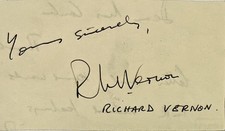 Yours sincerely,
R Vernon
RICHARD VERNON.